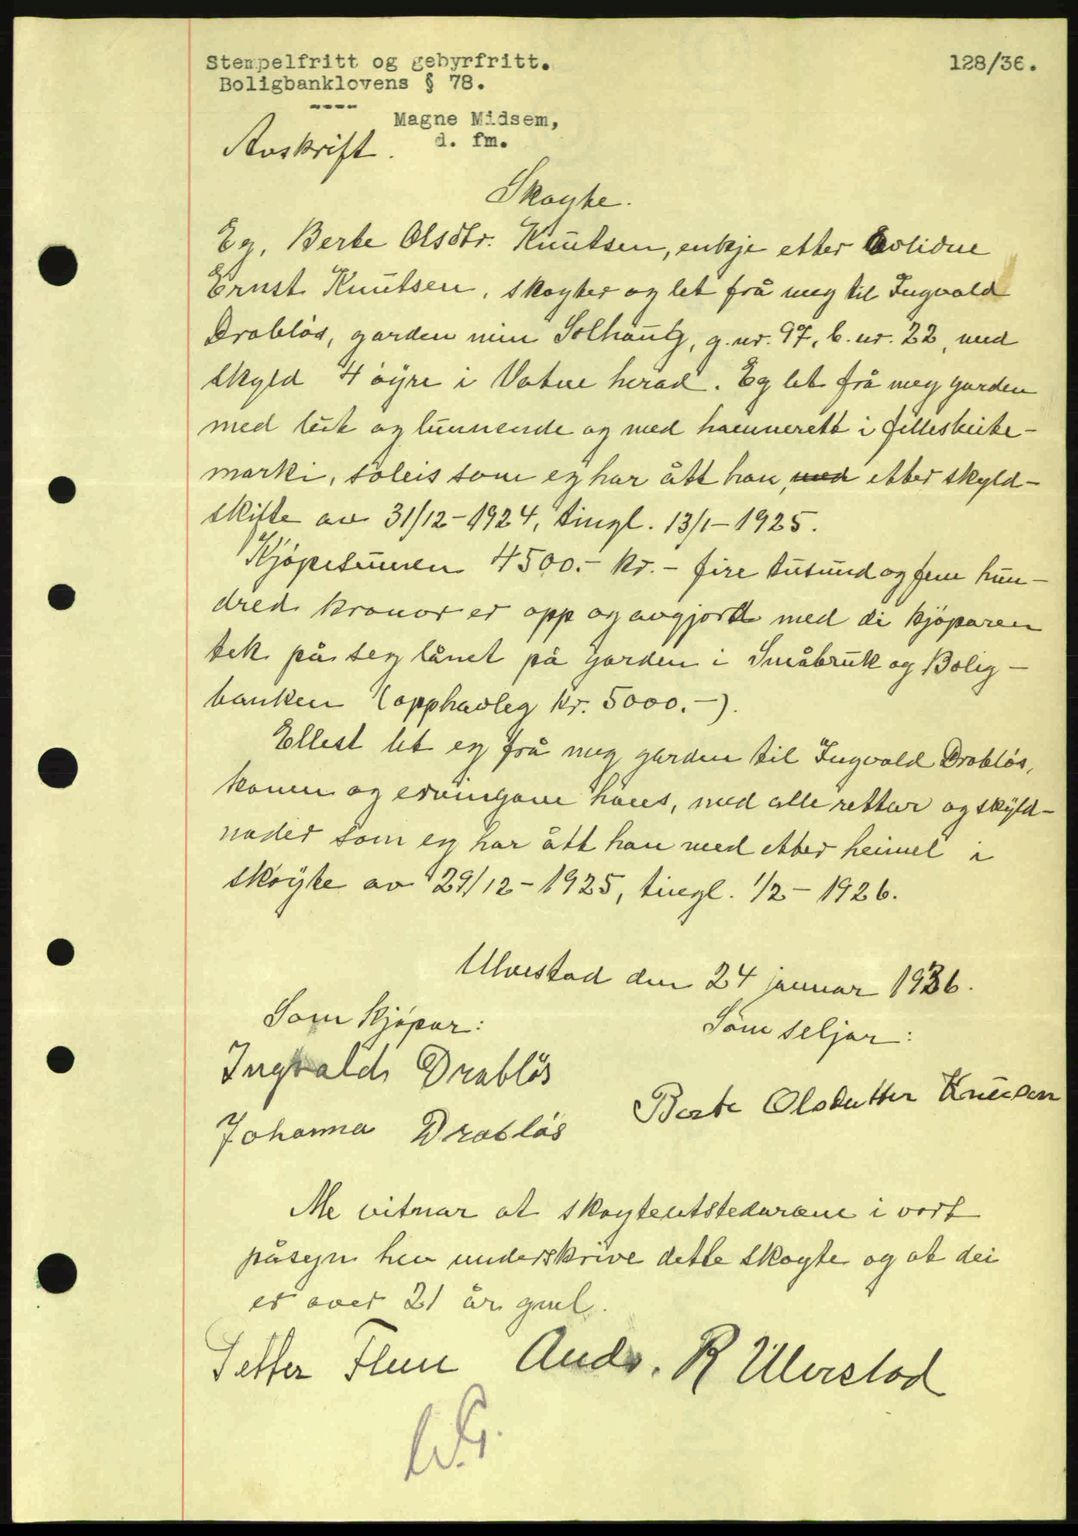 Stempelfritt og gebyrfritt.
128/36.
Boligbanklovens § 78.
----
Magne Midsem,
d. fm.
Avskrift.
Skøyte.
Eg, Berte Olsdtr. Knutsen, enkje etter avlidne
Ernst Knutsen, skøyter og let frå meg til Ingvald
Drabløs, garden min Solhaug, g.nr. 97, b.nr. 22, med
skyld 4 øyre i Vatne herad. Eg let frå meg garden
med lut og lunnende og med hamnerett i fellesbeite-
marki, soleis som eg har ått han, med etter skyld-
skifte av 31/12-1924, tingl. 13/1-1925.
Kjøpesumen 4500.- kr. - fire tusund og fem hun-
dred kronor er opp og avgjord med di kjøparen
tek på seg lånet på garden i Småbruk og Bolig-
banken (opphavleg kr. 5000.-).
Ellest let eg frå meg garden til Ingvald Drabløs,
konen og ervingane hans, med alle rettar og skyld-
nader som eg har ått han med etter heimel i
skøyte av 29/12-1925, tingl. 1/2-1926.
Ulvestad den 24 januar 1936.
Som kjøpar:
Som seljar:
Ingvald Drabløs
Berte Olsdatter Knutsen
Johanna Drabløs
Me vitnar at skøyteutstedarane i vort
påsyn hev underskrive dette skøyte og at dei
er over 21 år gml.
Petter Flem Andr. R Ulvestad